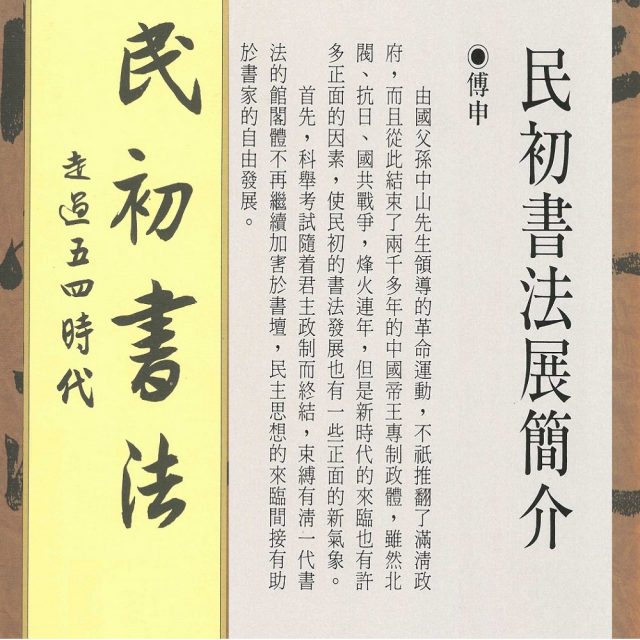 民初書法展簡介
◉傅申
由國父孫中山先生領導的革命運動，不祇推翻了滿淸政
府，而且從此結束了兩千多年的中國帝王專制政體，雖然北
閥、抗日、國共戰爭，烽火連年，但是新時代的來臨也有許
多正面的因素，使民初的書法發展也有一些正面的新氣象。
首先，科舉考試隨着君主政制而終結，束縛有淸一代書
法的館閣體不再繼續加害於書壇，民主思想的來臨間接有助
於書家的自由發展。
民初書法
走過五四時代